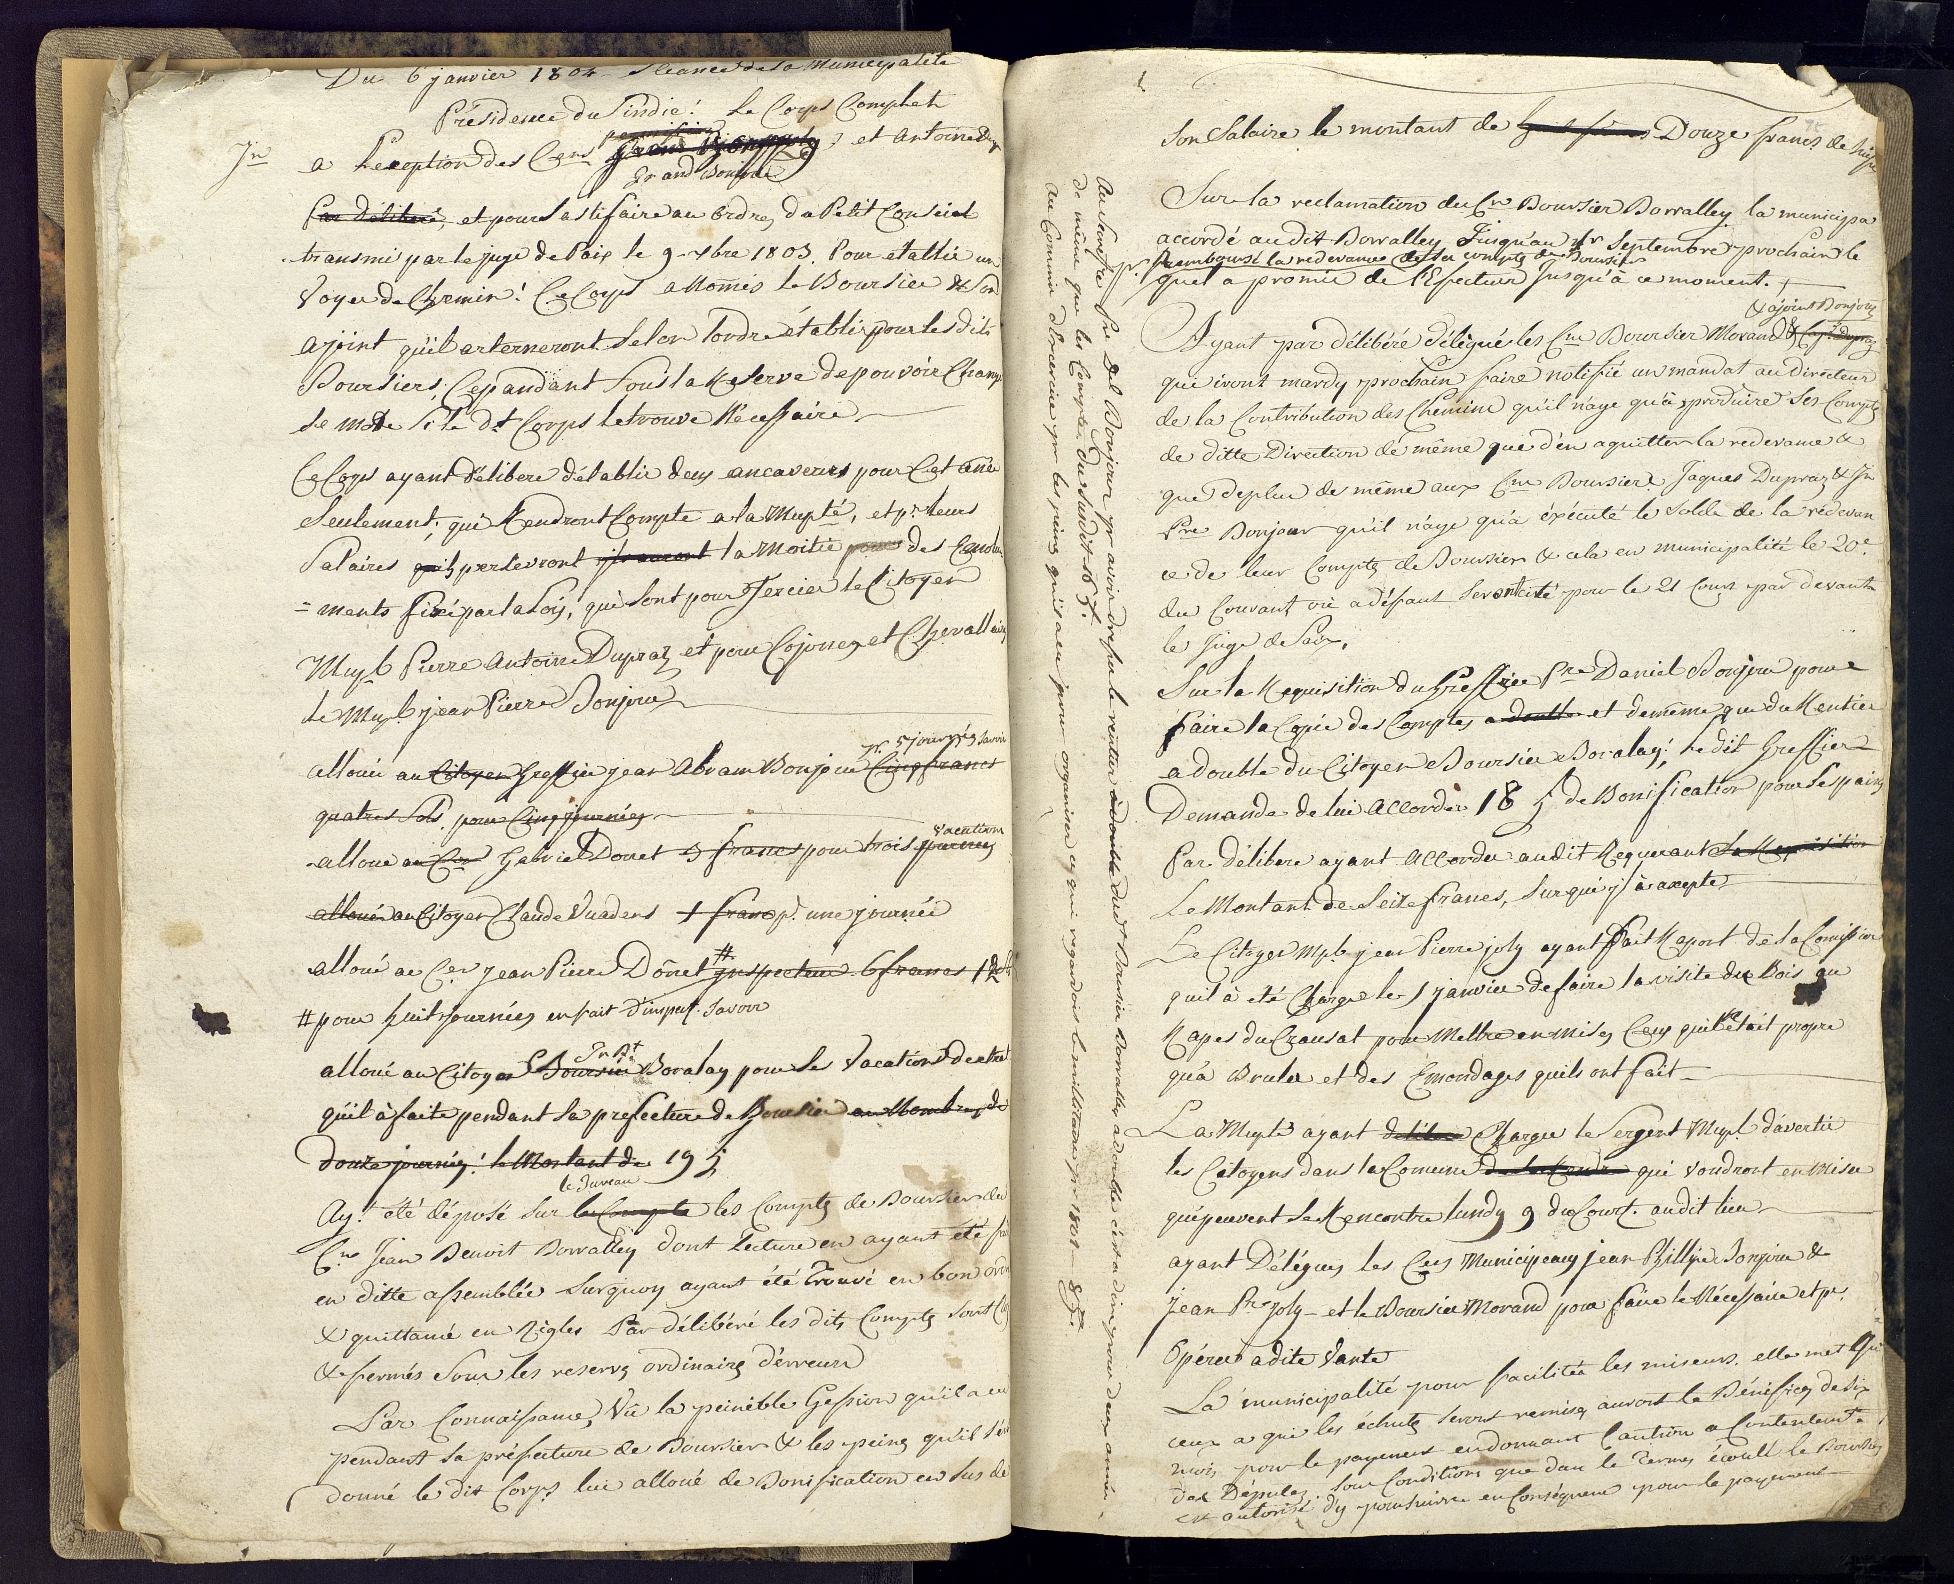 Du 6 janvier 1804 Séance de la Municipalité
Présidence du Sindic! Le Corps Complet
Jn a l'exeption des Cens et Antoine
Grand Bonjour
Par délibéré, et pour Sastifaire au Ordres du Pétit Conseiel
transmi par le juge de Paix le 9 Xbre 1803. Pour établie un
Voyer de Chemin! Ce Corps a Només le Boursier & Son
ajoint qu'il arterneront Selon l'ordre établis pour les dit
Boursiers, Cepandant Sous la Reserve de pouvoir Change
le mode Si le dt Corps le trouve Nécessaire
Ce Corps ayant délibere d'établir deux encaveurs pour Cet année
Seulement, qui Rendront Compte a la Muplté, et pr leurs
Salaires quils perlevront ils auront la Moitié pour des Emolu
=ments fixé par la Loix, qui Sont pour Tercier le Citoyen
Mupl Pierre Antoine Dupraz et pour Cojonnex et Chevall
le Mupl jean Pierre Bonjour
pr 5 journés Savoir
alloué au Citoyen Greffier jean Abram Bonjour Cinq francs
quatres Sols pour Cinq journés
vacations
alloué au Cen Gabriel Donet 3 francs pour trois journés
alloué au Citoyen Claude Vuadens 1 franc pr une journée
alloué au Cen jean Pierre Donet # inspecteur 6 francs 12
# pour huit journées en fait d'inspect. Savoir
Jn Bt
alloué au Citoyen Boursier Boralay pour les Vacations dextra
quil à faite pendant Sa prefecture de Boursier au Nombres de
douze journés! le Montant de 19
le Bureau
Ayt été déposé sur le Compte les Compts de Boursier du
Cne Jean Benoit Borralley dont lecture en ayant été fai
en ditte assemblée Surquoy ayant été trouvé en bon ordre
& quittancé en Rigles Par délibéré les dits Compts Sont
& fermés Sous les reserves ordinaires d'erreurs
Par Connaissance, Vû la peinible Gession qu'il a eu
pendant sa préfecture de Boursier & les peines qu'il s'est
donné le dit Corps lui alloue de Bonification en Sus de
1
Son Salaire le montant de Douze francs de
Sur la reclamation du Cn Boursier Borralley la municipa
accordé au dit Borralley Jusqu'au 1r Septembre prochain le
remboursé la redevance de Son compte de Boursier
quil a promis de l'Efectuer Jusqu'à ce moment. +
& ajoint Bonjour
Ayant par délibéré délégué les Cns Boursier Morand &
qui iront mardy prochain faire notifié un mandat au directeur
de la Contribution des Chemins qu'il n'aye qu'à produire Ses Compts
de ditte Direction dé même que d'en aquitter la redevance &
que deplus de même aux Cns Boursiers Jaques Dupraz & Jn
Pre Bonjour qu'il n'aye qu'a éxécuté le Solde de la redevan
ce de leur Compts de Boursier & cela en municipalité le 20e
du Courant où a défaut Seront cité pour le 21 Court par devant
le juge de Paix,
Sur la Requisition du Greffier Pre Daniel Bonjour pour
faire la Copie des Comptes a double et demême que du Rentier
a double du Citoyen Boursier Boralay! Le dit Greffier
Demande de lui accorder 18 de Bonification pour Ses paines
Par délibere ayant accorder au dit Requerant la Requisition
Le Montant de Seize francs, Sur qui y à axepte
Le Citoyen Mupl jean Pierre joly ayant fait Raport de la Comission
quil à eté Charge le 1 janvier de faire la visite du Bois au
Rapes du Crausat pour Mettre en mises Ceux quil n'était propre
qu'à Bruler et des Emondages quils ont fait
La Muplté ayant délibere Charger le Sergent Mupl d'avertir
les Citoyens dans la Comune qui Voudront en Miser
qu'ipeuvent Se Rencontre lundy 9 du Court. audit lieu
ayant Délégues les Cens Municipeaux jean Phillipe Bonjour &
jean Pre joly et le Boursier Morand pour faire le Nécessaire et pr.
Opérer a dite Vante
La municipalité pour facilités les miseurs, elle met que
ceux a qui les échuts Seront remises auront le Bénéfices de Six
mois pour le payement en donnant Caution a Contentemt
des Députez, Sous Conditions que dans le Termes écoulé le Boursier
est autorisé d'y poursuivre en Conséquence pour le payement
Au Greffier Pre Dl Bonjour pr avoir dressé le rentier à double du dt Boursier Borralley a double c'est a dire pour deux années,
de même que les Comptes du Susdit 16
Au Commis d'Exercice pr les peines qu'il a eu pour organiser ce qui regardois le militaire pr 1803 8